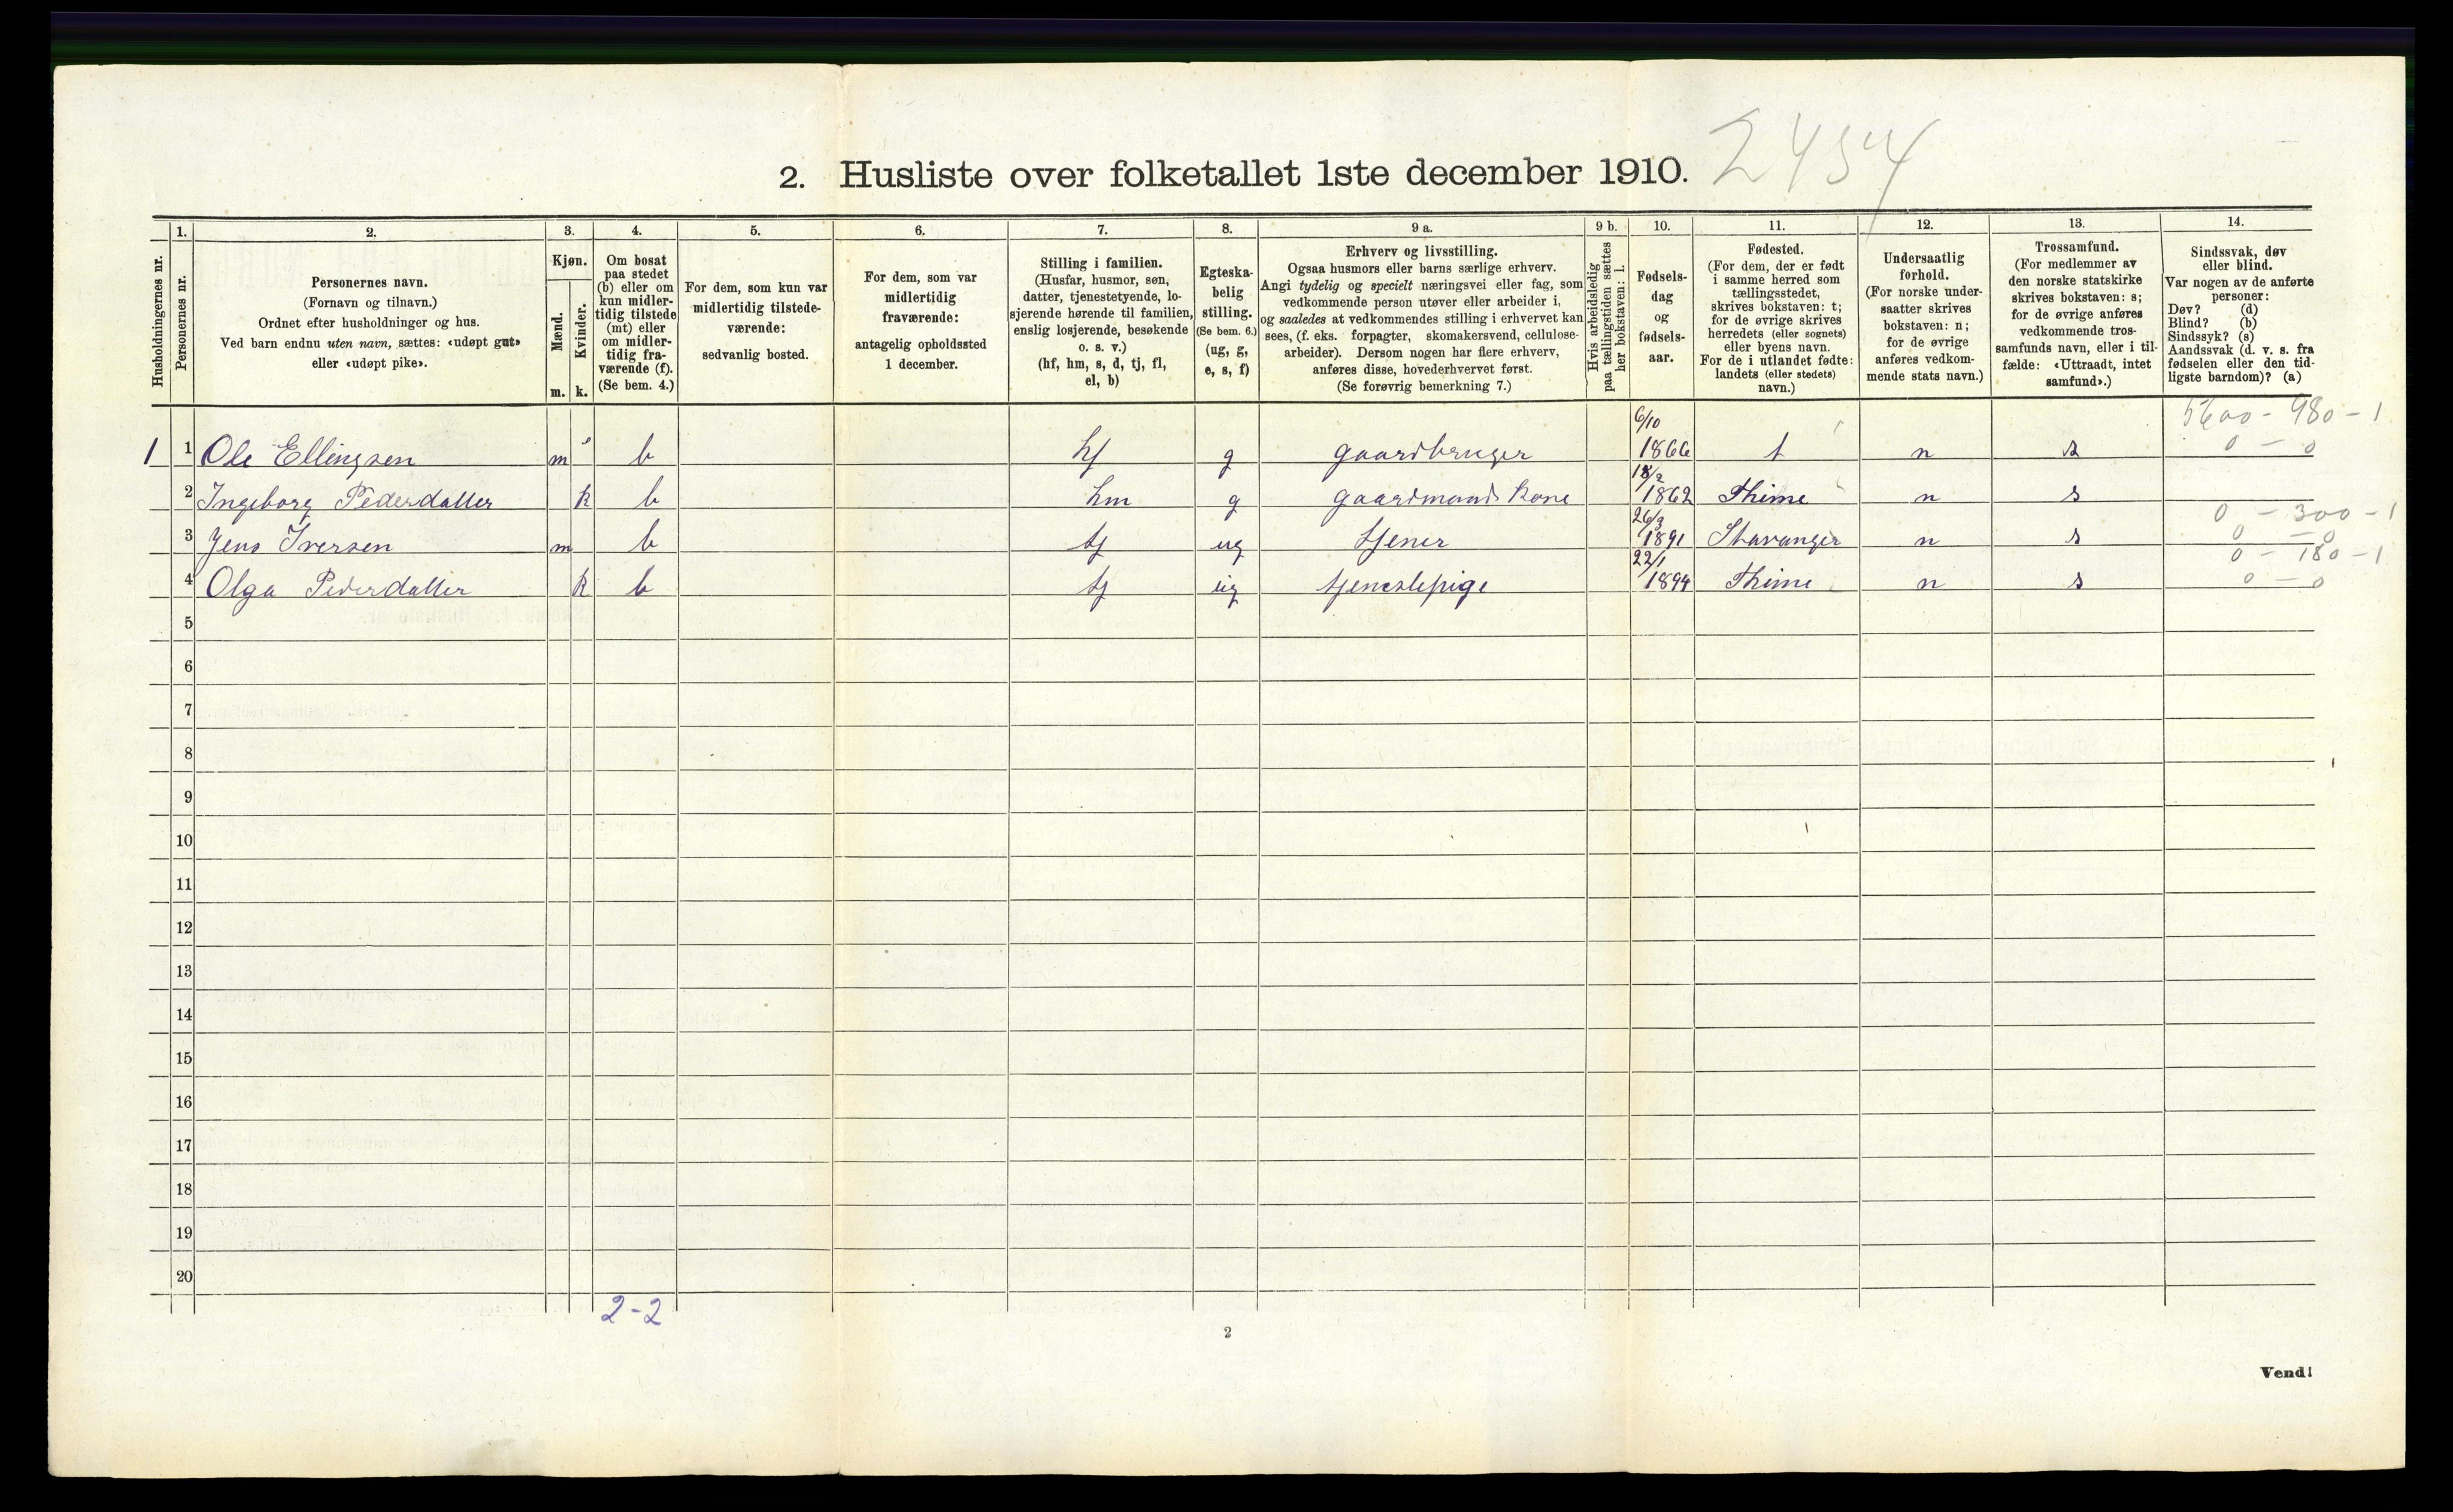 2454
2. Husliste over folketallet 1ste december 1910.
Husholdningernes nr.
1.
Personernes nr.
2.
Personernes navn.
(Fornavn og tilnavn.)
Ordnet efter husholdninger og hus.
Ved barn endnu uten navn, sættes: «udøpt gut»
eller «udøpt pike».
3.
Kjøn.
Mænd.
Kvinder.
m. k.
4.
Om bosat
paa stedet
(b) eller om
kun midler-
tidig tilstede
(mt) eller
om midler-
tidig fra-
værende (f).
(Se bem. 4.)
5.
For dem, som kun var
midlertidig tilstede-
værende:
sedvanlig bosted.
6.
For dem, som var
midlertidig
fraværende:
antagelig opholdssted
1 december.
7.
Stilling i familien.
(Husfar, husmor, søn,
datter, tjenestetyende, lo-
sjerende hørende til familien,
enslig losjerende, besøkende
o. s. v.)
(hf, hm, s, d, tj, fl,
el, b)
8.
Egteska-
belig
stilling.
(Se bem. 6.)
(ug, g,
e, s, f)
9 a.
Erhverv og livsstilling.
Ogsaa husmors eller barns særlige erhverv.
Angi tydelig og specielt næringsvei eller fag, som
vedkommende person utøver eller arbeider i,
og saaledes at vedkommendes stilling i erhvervet kan
sees, (f. eks. forpagter, skomakersvend, cellulose-
arbeider). Dersom nogen har flere erhverv,
anføres disse, hovederhvervet først.
(Se forøvrig bemerkning 7.)
9 b.
Hvis arbeidsledig
paa tællingstiden sættes
her bokstaven: l.
10.
Fødsels-
dag
og
fødsels-
aar.
11.
Fødested.
(For dem, der er født
i samme herred som
tællingsstedet,
skrives bokstaven: t;
for de øvrige skrives
herredets (eller sognets)
eller byens navn.
For de i utlandet fødte:
landets (eller stedets)
navn.)
12.
Undersaatlig
forhold.
(For norske under-
saatter skrives
bokstaven: n;
for de øvrige
anføres vedkom-
mende stats navn.)
13.
Trossamfund.
(For medlemmer av
den norske statskirke
skrives bokstaven: s;
for de øvrige anføres
vedkommende tros-
samfunds navn, eller i til-
fælde: «Uttraadt, intet
samfund».)
14.
Sindssvak, døv
eller blind.
Var nogen av de anførte
personer:
Døv? (d)
Blind? (b)
Sindssyk? (s)
Aandssvak (d. v. s. fra
fødselen eller den tid-
ligste barndom)? (a)
5600 - 980 - 1
1 1 Ole Ellingsen m b hf g gaardbruger 6/10 1866 t n s 0 - 0
2 Ingeborg Pedersdatter k b hm g gaardmands kone 18/2 1862 Thime n s
0 - 300 - 1
3 Jens Iversen m b tj ug tjener 26/3 1891 Stavanger n s 0 - 0
0 - 180 - 1
4 Olga Pedersdatter k b tj ug tjenestepige 22/1 1894 Thime n s 0 - 0
5
6
7
8
9
10
11
12
13
14
15
16
17
18
19
20
2-2
2
Vend!